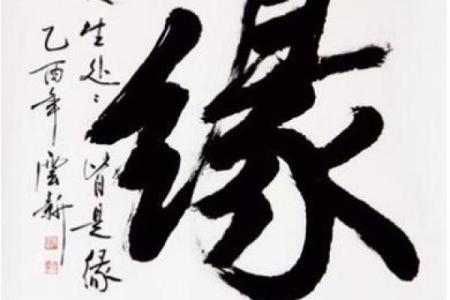 缘
生处々皆是缘
乙酉年雲新